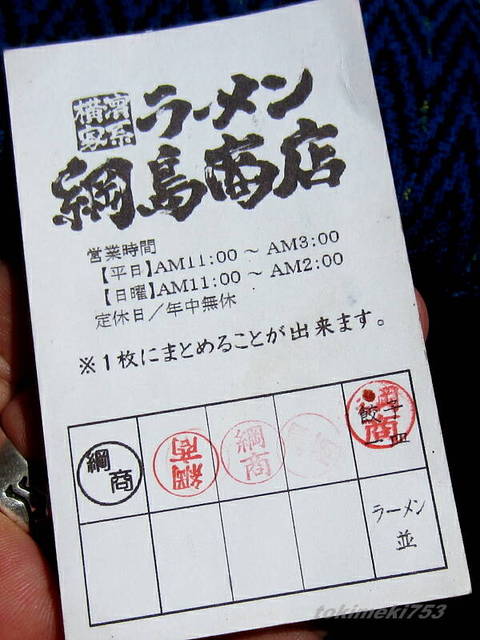 横濱家系 ラーメン
綱島商店
営業時間
【平日】AM11:00 ～ AM3:00
【日曜】AM11:00 ～ AM2:00
定休日／年中無休
※１枚にまとめることが出来ます。
綱商
綱商
綱商
餃子
ラーメン
並
tokimeki753